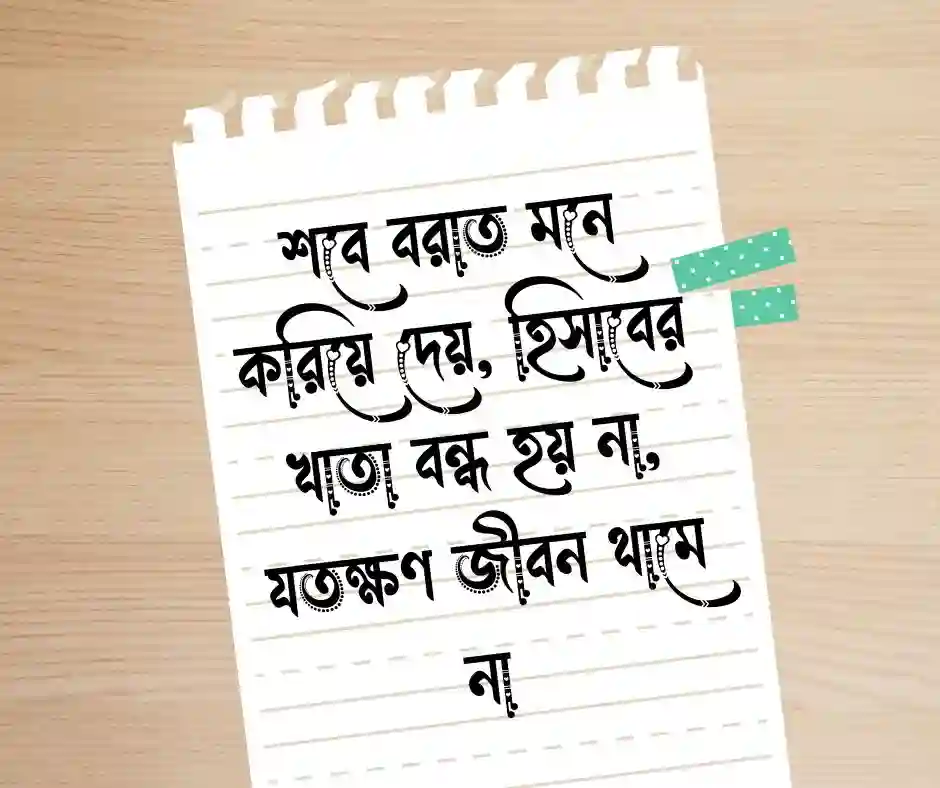 শবে বরাত মনে
করিয়ে দেয়, হিসাবের
খাতা বন্ধ হয় না,
যতক্ষণ জীবন থামে
না